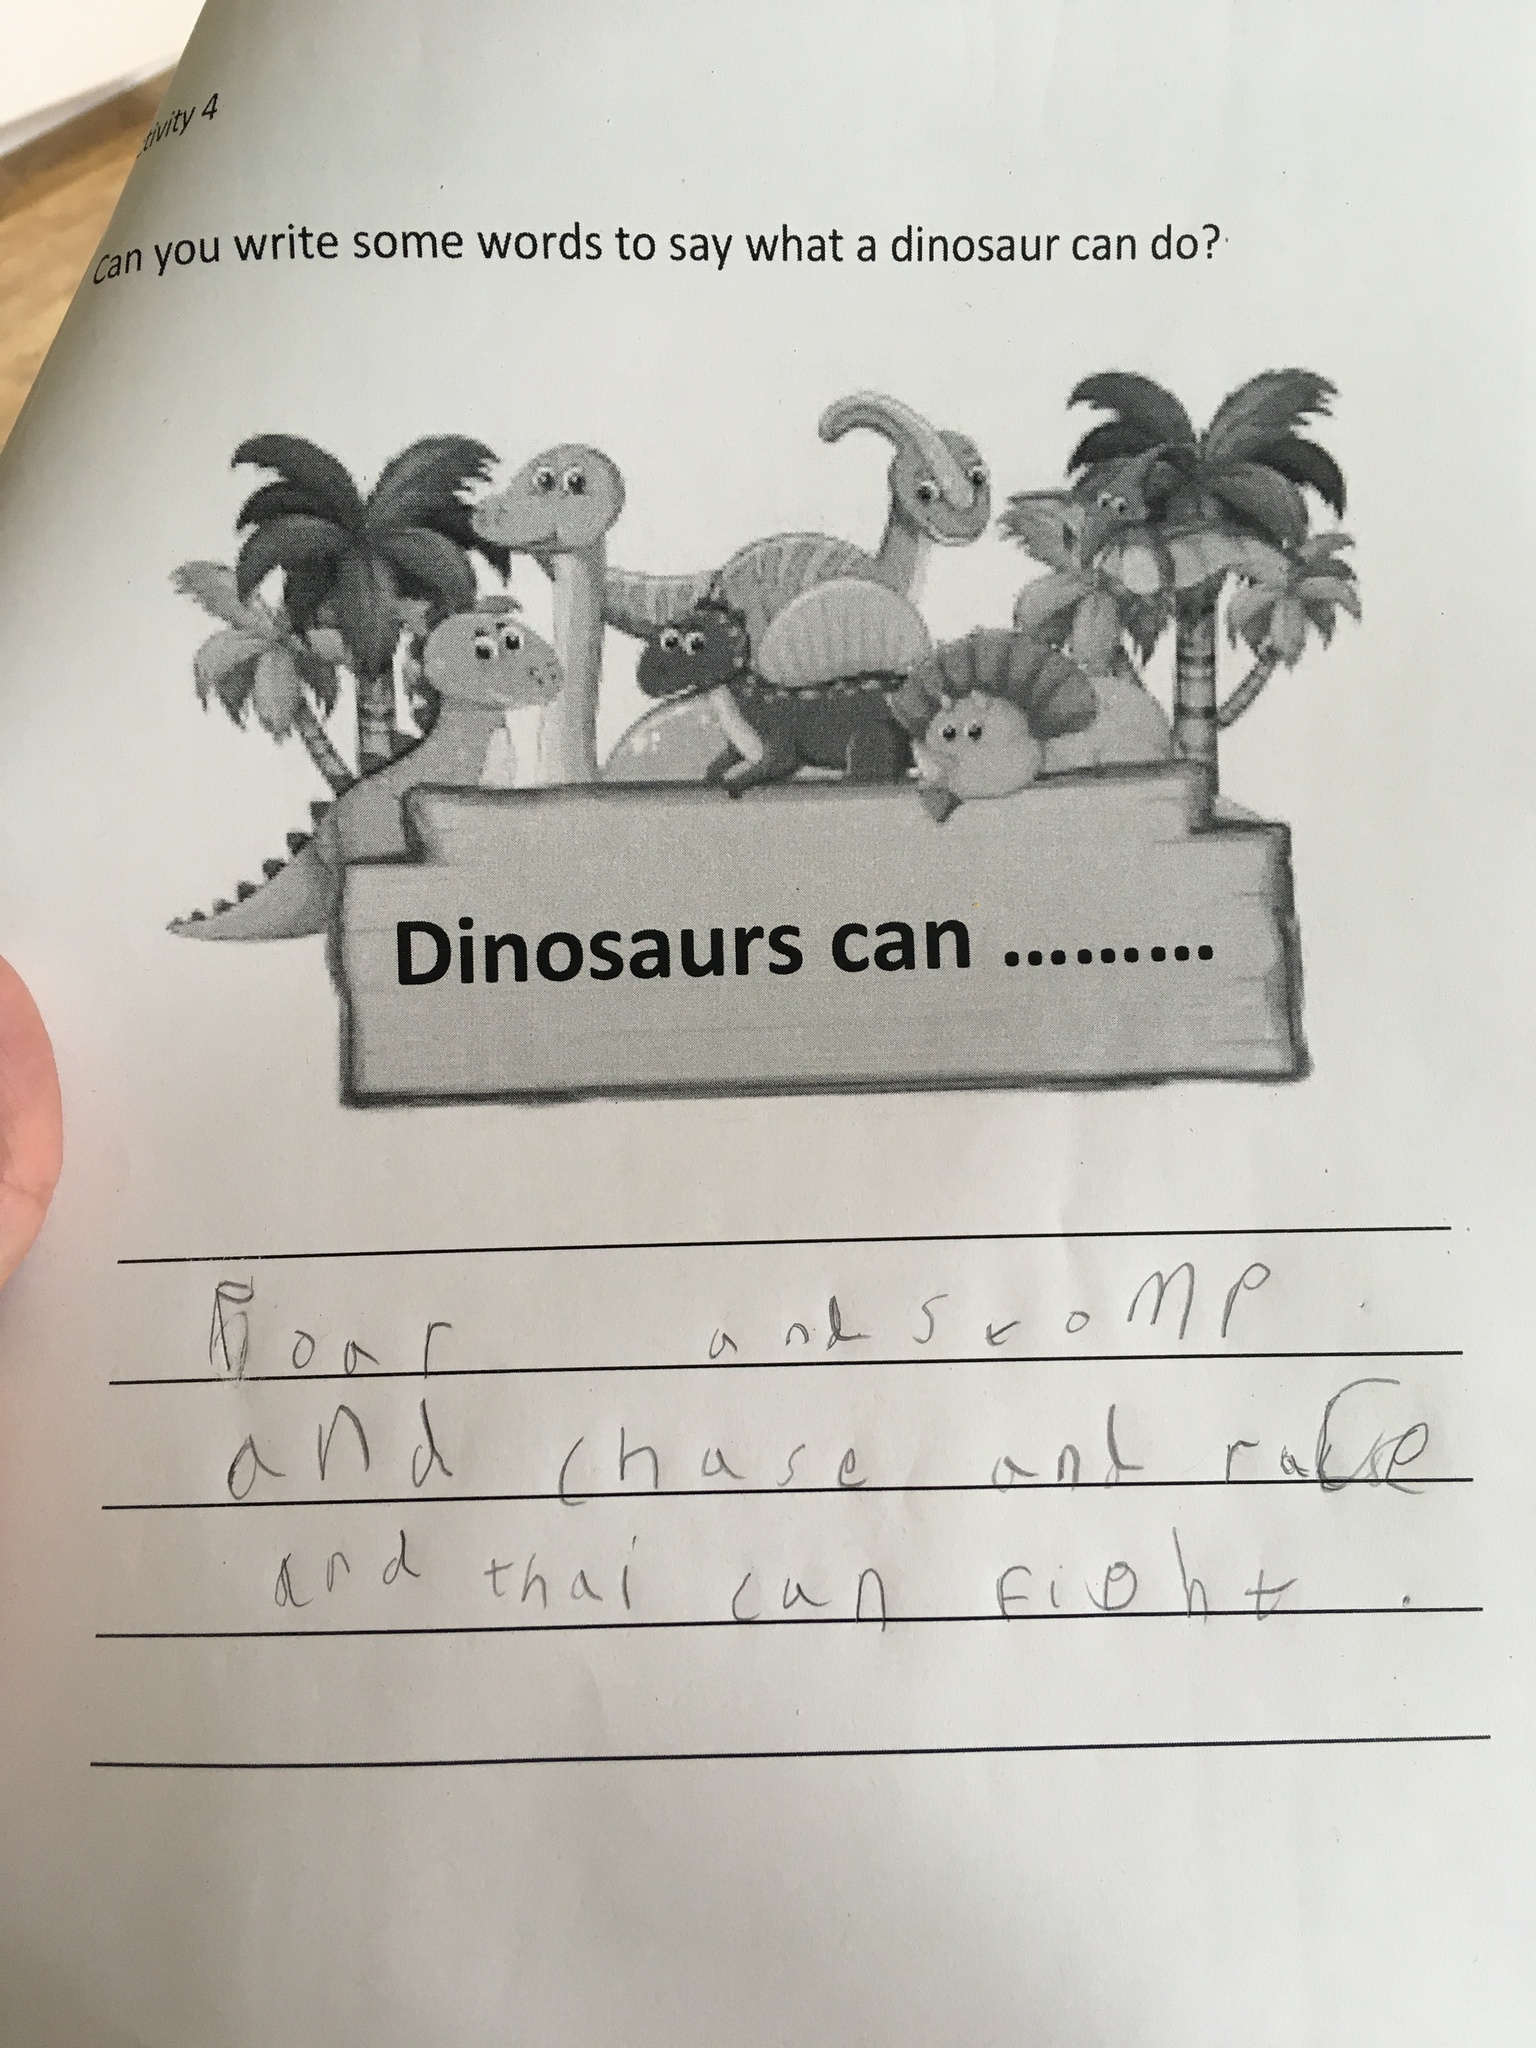 tivity 4
Can you write some words to say what a dinosaur can do?
Dinosaurs can .........
Roar and stomp
and chase and race
and thai can fight .